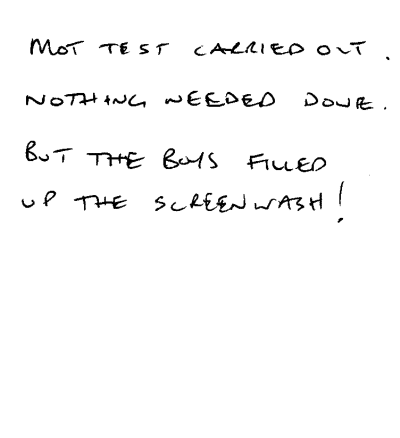 MOT TEST CARRIED OUT.
NOTHING NEEDED DONE.
BUT THE BOYS FILLED
UP THE SCREENWASH!